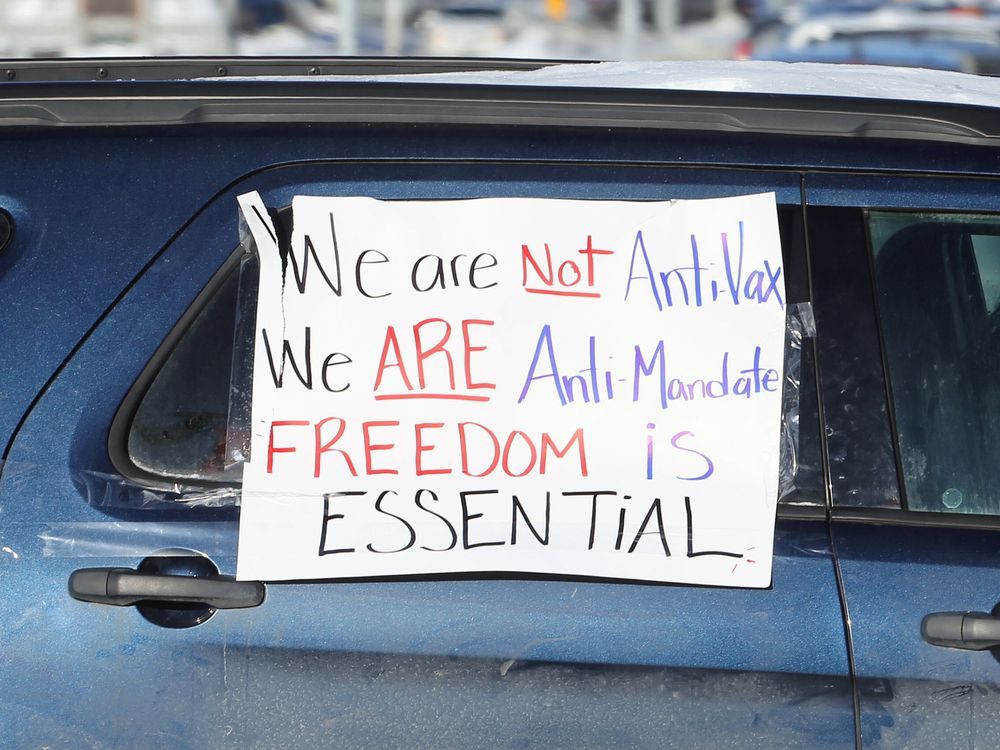 We are Not Anti-Vax
We ARE Anti-Mandate
FREEDOM is
ESSENTiAL